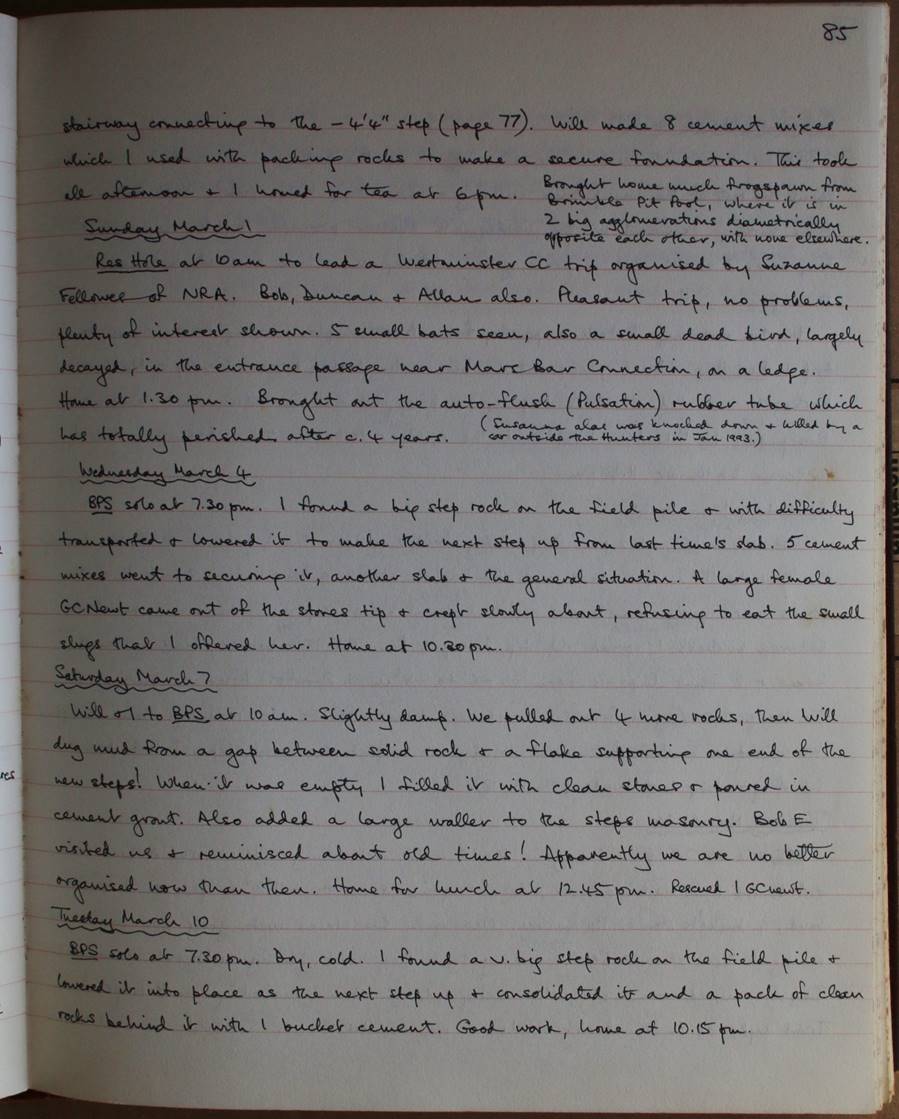 85
stairway connecting to the - 4'4" step (page 77). Will made 8 cement mixes
which I used with packing rocks to make a secure foundation. This took
all afternoon & I homed for tea at 6pm. Brought home much frogspawn from
Brimble Pit Pool, where it is in
2 big agglomerations diametrically
opposite each other, with none elsewhere.
Sunday March 1
Res Hole at 10am to lead a Westminster CC trip organised by Suzanne
Fellowes of NRA. Bob, Duncan & Allan also. Pleasant trip, no problems,
plenty of interest shown. 5 small bats seen, also a small dead bird, largely
decayed, in the entrance passage near Mars Bar Connection, on a ledge.
Home at 1.30 pm. Brought out the auto-flush (Pulsation) rubber tube which
has totally perished after c. 4 years. (Susanna alas was knocked down & killed by a
car outside the Hunters in Jan 1993.)
Wednesday March 4
BPS solo at 7.30 pm. I found a big step rock on the field pile & with difficulty
transported & lowered it to make the next step up from last time's slab. 5 cement
mixes went to securing it, another slab & the general situation. A large female
GCNewt came out of the stones tip & crept slowly about, refusing to eat the small
slugs that I offered her. Home at 10.30 pm.
Saturday March 7
Will & I to BPS at 10 am. Slightly damp. We pulled out 4 more rocks, then Will
dug mud from a gap between solid rock & a flake supporting one end of the
new steps! When it was empty I filled it with clean stones & poured in
cement grout. Also added a large waller to the steps masonry. Bob E
visited us & reminisced about old times! Apparently we are no better
organised now than then. Home for lunch at 12.45 pm. Rescued 1 GCnewt.
Tuesday March 10
BPS solo at 7.30 pm. Dry, cold. I found a v. big step rock on the field pile &
lowered it into place as the next step up & consolidated it and a pack of clean
rocks behind it with 1 bucket cement. Good work, home at 10.15 pm.